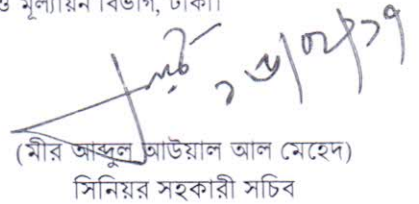 ও মূল্যায়ন বিভাগ, ঢাকা।
(মীর আব্দুল আউয়াল আল মেহেদ)
সিনিয়র সহকারী সচিব